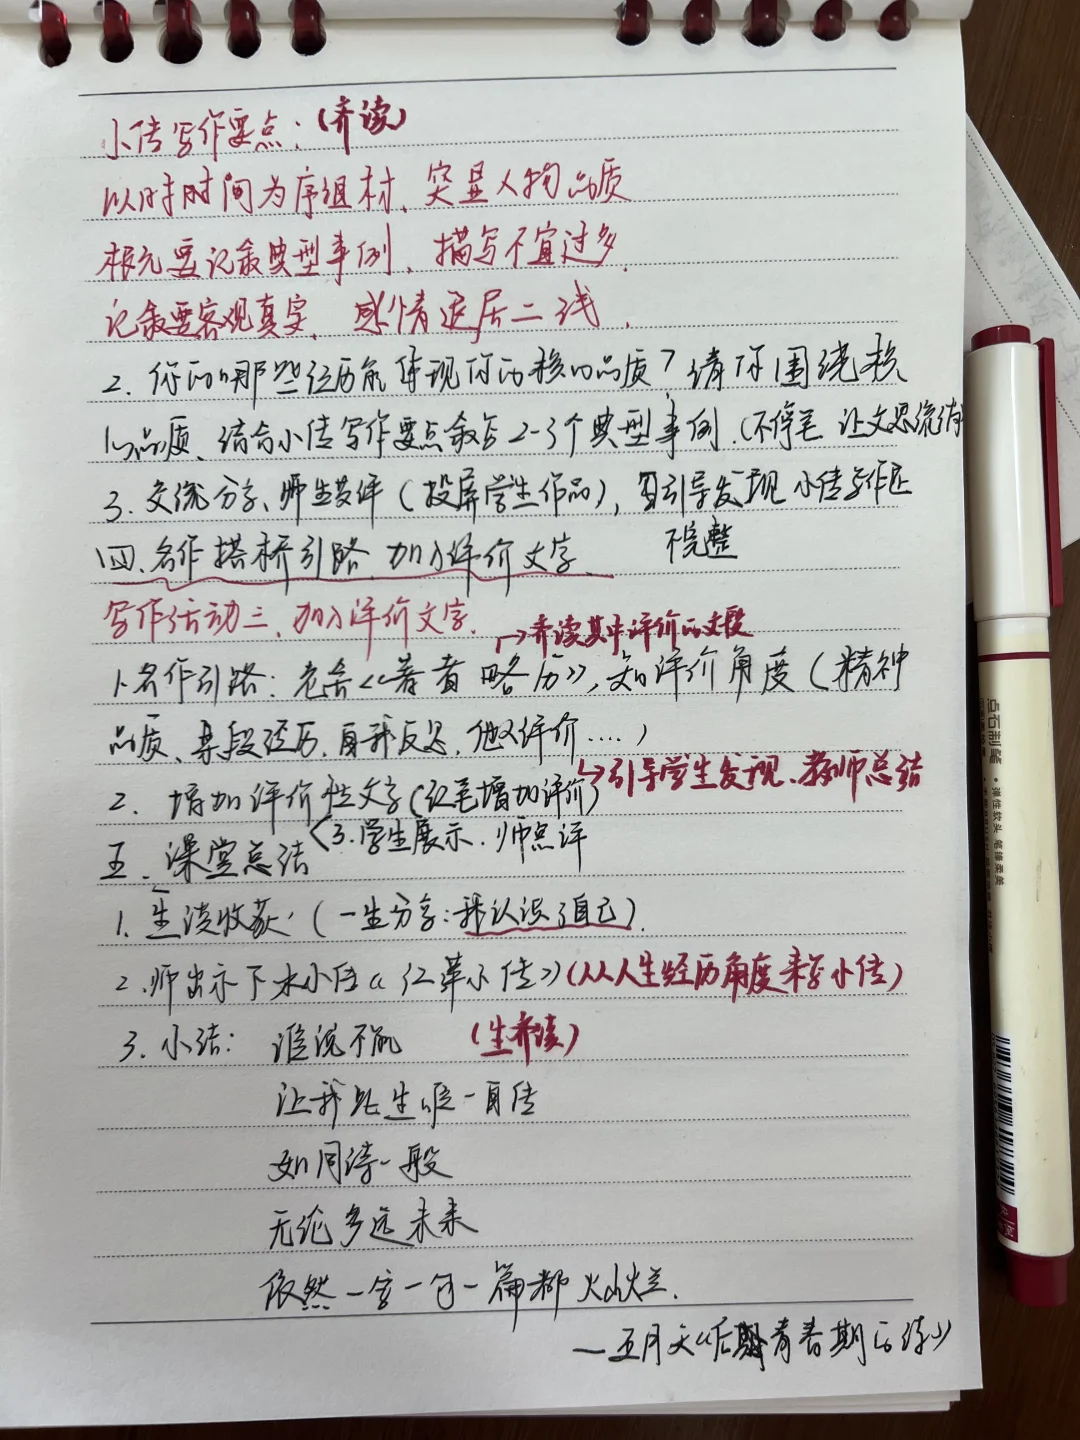 小传写作要点：（齐读）
以时时间为序组材、突显人物品质
根究要记叙典型事例、描写不宜过多、
记叙要客观真实、感情退居二线、
2. 你的哪些经历能体现你的核心品质？请你围绕核
心品质、结合小传写作要点叙写2-3个典型事例.（不停笔 让文思流淌
3. 交流分享、师生共评（投屏学生作品），引导发现小传写作还
不完整
四、名作搭桥引路、加入评价文字
写作活动三、加入评价文字.
→齐读其中评价的文段
1、名作引路：老舍《著者略历》，知评价角度（精神
品质、某段经历、自我反思、他人评价....）
↳引导学生发现、教师总结
2、增加评价性文字（红笔增加评价）
3.学生展示.师点评
五、课堂总结
1. 生谈收获.（一生分享：我认识了自己）.
2.师出示下水小传《红革小传》（从人生经历角度来写小传）
3. 小结： 谁说不能 （生齐读）
让我此生唯一自传
如同诗一般
无论多远未来
依然一字一句一篇都灿烂.
—五月天《后青春期的诗》
点石制笔
·弹性软头 笔锋柔美